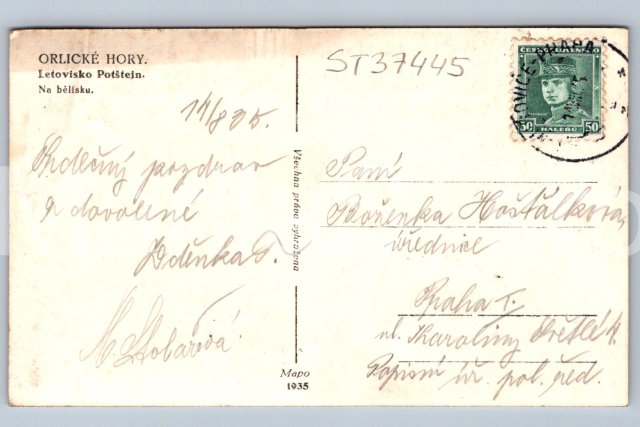 ORLICKÉ HORY.
Letovisko Potštein.
Na bělisku.
ST37445
11/8 35.
Srdečný pozdrav
z dovolené
Zděnka P.
M. Stolařová.
Všechna práva vyhrazena
Mapo
1935
ČESKOSLOVENSKO
50 50
HALÉŘŮ
OVICE-PRAHA
Paní
Boženka Hošťálková,
úřednice
Praha I.
ul. Karoliny Světlé
Popisní úř. pol. řed.